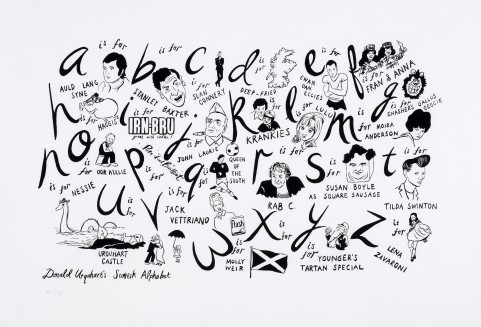 a is for AULD LANG SYNE
b is for STANLEY BAXTER
c is for SEAN CONNERY
d is for DEEP-FRIED
e is for EWAN DAM
f is for FRAN & ANNA
g is for GNASHERS GALLUS
h is for HAGGIS
i is for IRN-BRU
j is for JOHN LAURIE
k is for KRANKIES
l is for LULU
m is for MOIRA ANDERSON
n is for NESSIE
o is for OOR WILLIE
p is for
q is for QUEEN OF THE SOUTH
r is for RAB C.
s is for SUSAN BOYLE AS SQUARE SAUSAGE
t is for TILDA SWINTON
u is for URQUHART CASTLE
v is for JACK VETTRIANO
w is for MOLLY WEIR
flash
x is for
y is for YOUNGER'S TARTAN SPECIAL
z is for LENA ZAVARONI
Donald Urquhart's Scottish Alphabet